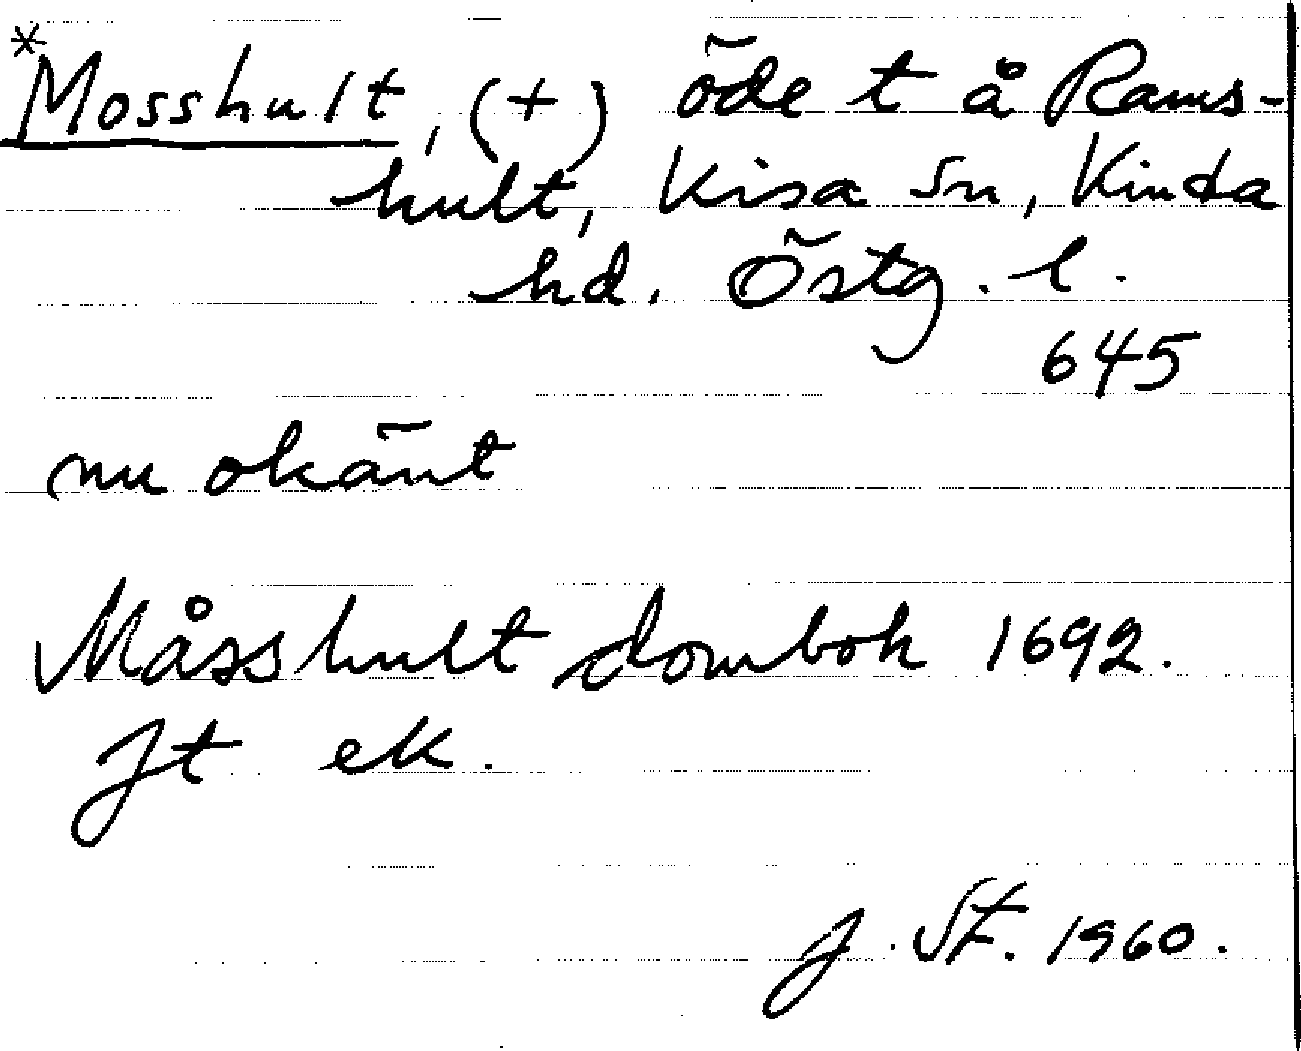 *Mosshult, (+) öde t å Rams-
hult, Kisa sn, Kinda
hd. Östg. l.
645
nu okänt
Måsshult dombok 1692.
Jt ek.
J. St. 1960.